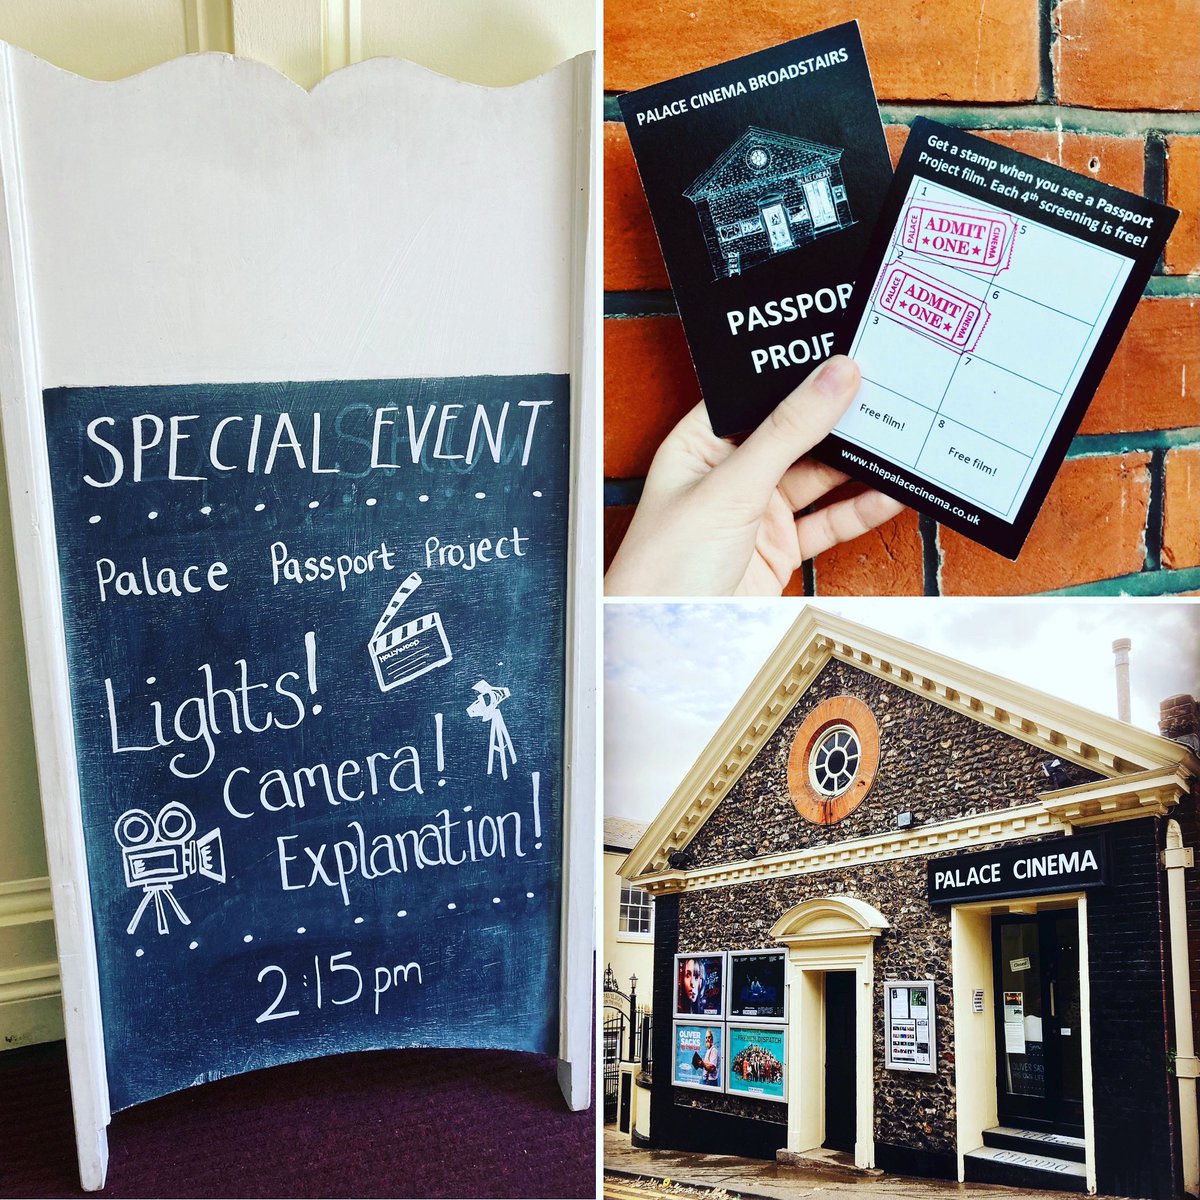 SPECIAL EVENT
Palace Passport Project
Lights!
HOLLYWOOD
Camera!
Explanation!
2:15pm
PALACE CINEMA BROADSTAIRS
PASSPOR
PROJE
Get a stamp when you see a Passport
Project film. Each 4th screening is free!
1
5
PALACE
ADMIT
ONE
CINEMA
2
6
PALACE
ADMIT
ONE
CINEMA
3
7
Free film!
8
Free film!
www.thepalacecinema.co.uk
PALACE CINEMA
Closed
OLIVER
SACKS
FRENCH DISPATCH
OLIVER SACKS
Cinema